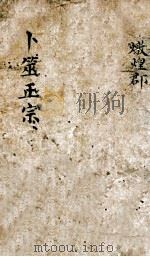 燉煌郡
卜筮正宗
http://www.mtoou.info/